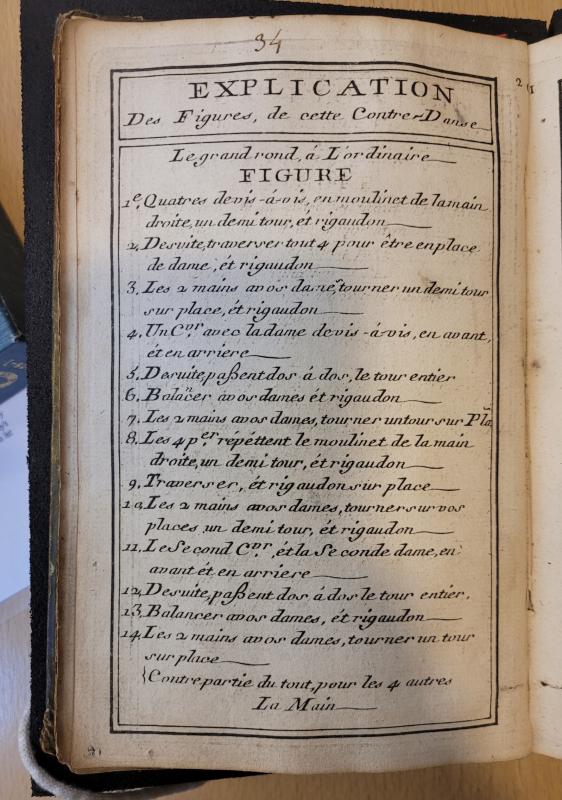 34
EXPLICATION
Des Figures, de cette Contre-Danse
Le grand rond, á L'ordinaire
FIGURE
1e. Quatres de vis-á-vis, en moulinet de la main
droite, un demi tour, ét rigaudon
2. De suite, traverser tout 4 pour être en place
de dame, ét rigaudon
3. Les 2 mains a vos dames, tourner un demi tour
sur place, ét rigaudon
4. Un Cvr. avec la dame de vis-á-vis, en avant,
ét en arriere
5. De suite, paßent dos á dos, le tour entier
6. Balancer a vos dames ét rigaudon
7. Les 2 mains a vos dames, tourner un tour sur Pla
8. Les 4 pers. repettent le moulinet de la main
droite, un demi tour, ét rigaudon
9. Traverser, ét rigaudon sur place
10. Les 2 mains a vos dames, tourner sur vos
places, un demi tour, ét rigaudon
11. Le Second Cvr. ét la Seconde dame, en
avant ét en arriere
12. De suite, paßent dos á dos le tour entier.
13. Balancer a vos dames, ét rigaudon
14. Les 2 mains a vos dames, tourner un tour
sur place
Contre partie du tout, pour les 4 autres
La Main